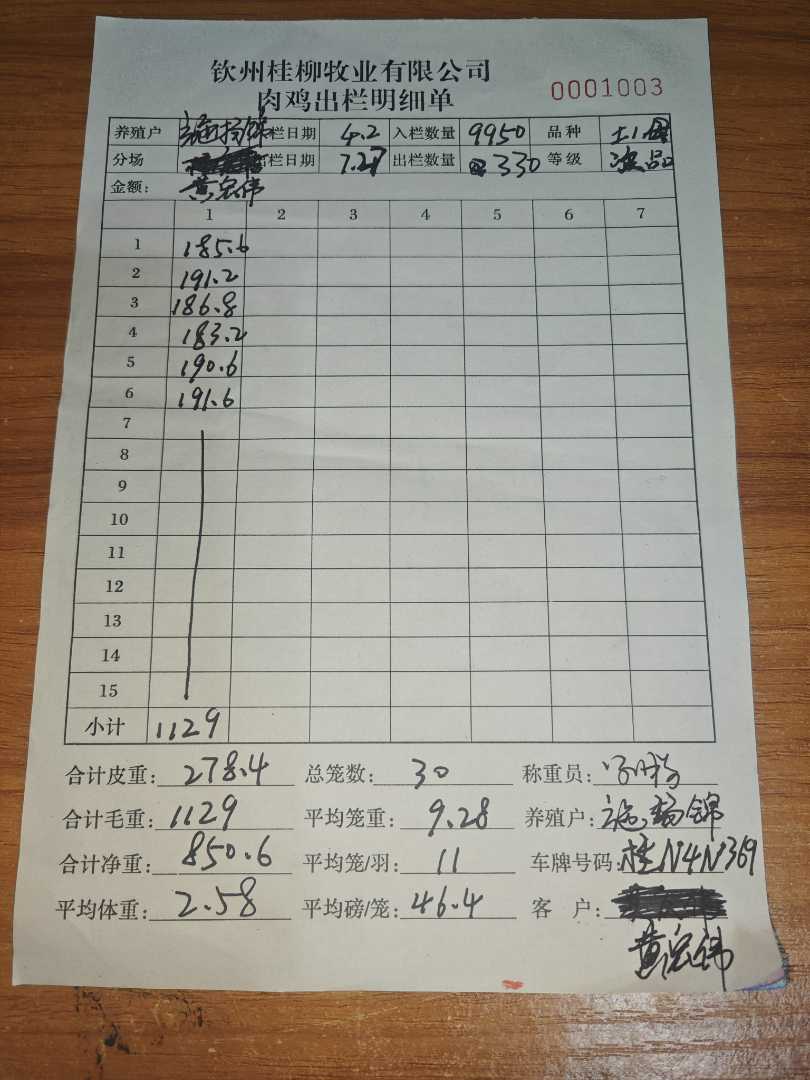 钦州桂柳牧业有限公司
肉鸡出栏明细单 0001003
养殖户 施扬锦 栏日期 4.2 入栏数量 9950 品种
分场 栏日期 7.27 出栏数量 330 等级 次品
金额: 黄宏伟
1 2 3 4 5 6 7
1 185.6
2 191.2
3 186.8
4 183.2
5 190.6
6 191.6
7
8
9
10
11
12
13
14
15
小计 1129
合计皮重: 278.4 总笼数: 30 称重员:
合计毛重: 1129 平均笼重: 9.28 养殖户: 施扬锦
合计净重: 850.6 平均笼/羽: 11 车牌号码: 桂N4N369
平均体重: 2.58 平均磅/笼: 46.4 客 户:
黄宏伟